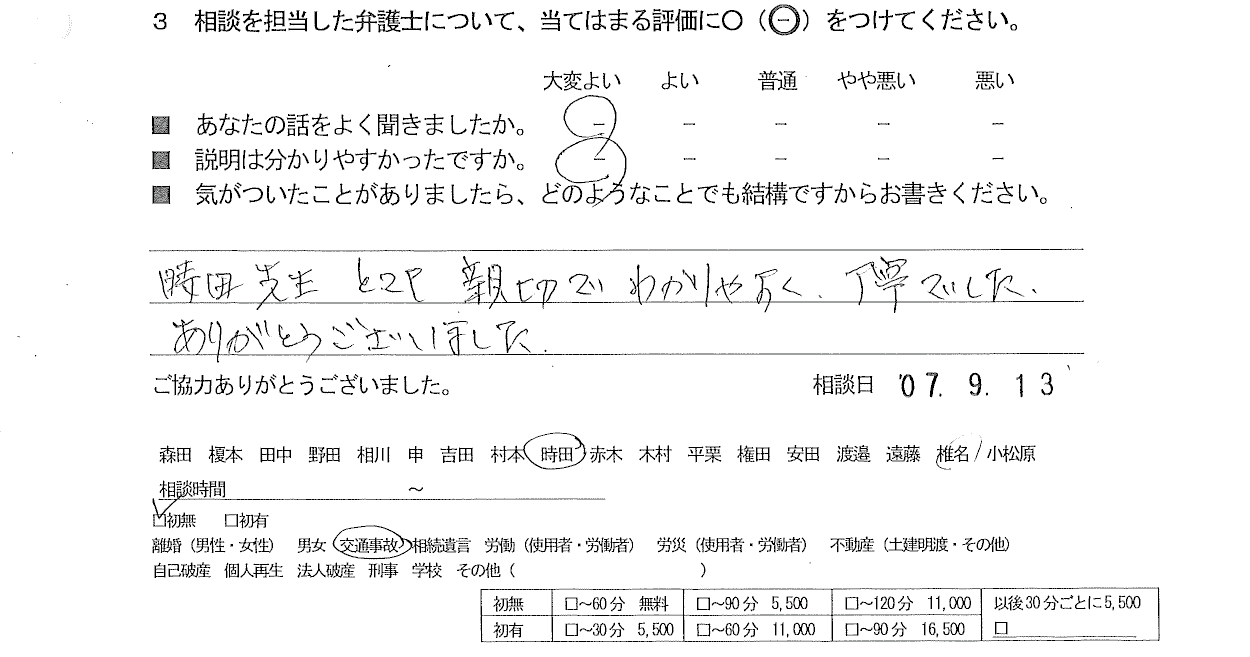 3 相談を担当した弁護士について、当てはまる評価に○（㊀）をつけてください。
大変よい よい 普通 やや悪い 悪い
■ あなたの話をよく聞きましたか。 － － － － －
■ 説明は分かりやすかったですか。 － － － － －
■ 気がついたことがありましたら、どのようなことでも結構ですからお書きください。
時田先生 とても 親切で わかりやすく、丁寧でした。
ありがとうございました。
ご協力ありがとうございました。 相談日 '07. 9. 13
森田 榎本 田中 野田 相川 申 吉田 村本 時田 赤木 木村 平栗 権田 安田 渡邉 遠藤 椎名 小松原
相談時間 ～
□初無 □初有
離婚（男性・女性） 男女 交通事故 相続遺言 労働（使用者・労働者） 労災（使用者・労働者） 不動産（土建明渡・その他）
自己破産 個人再生 法人破産 刑事 学校 その他（ ）
初無 □～60分 無料 □～90分 5,500 □～120分 11,000 以後30分ごとに5,500
初有 □～30分 5,500 □～60分 11,000 □～90分 16,500 □